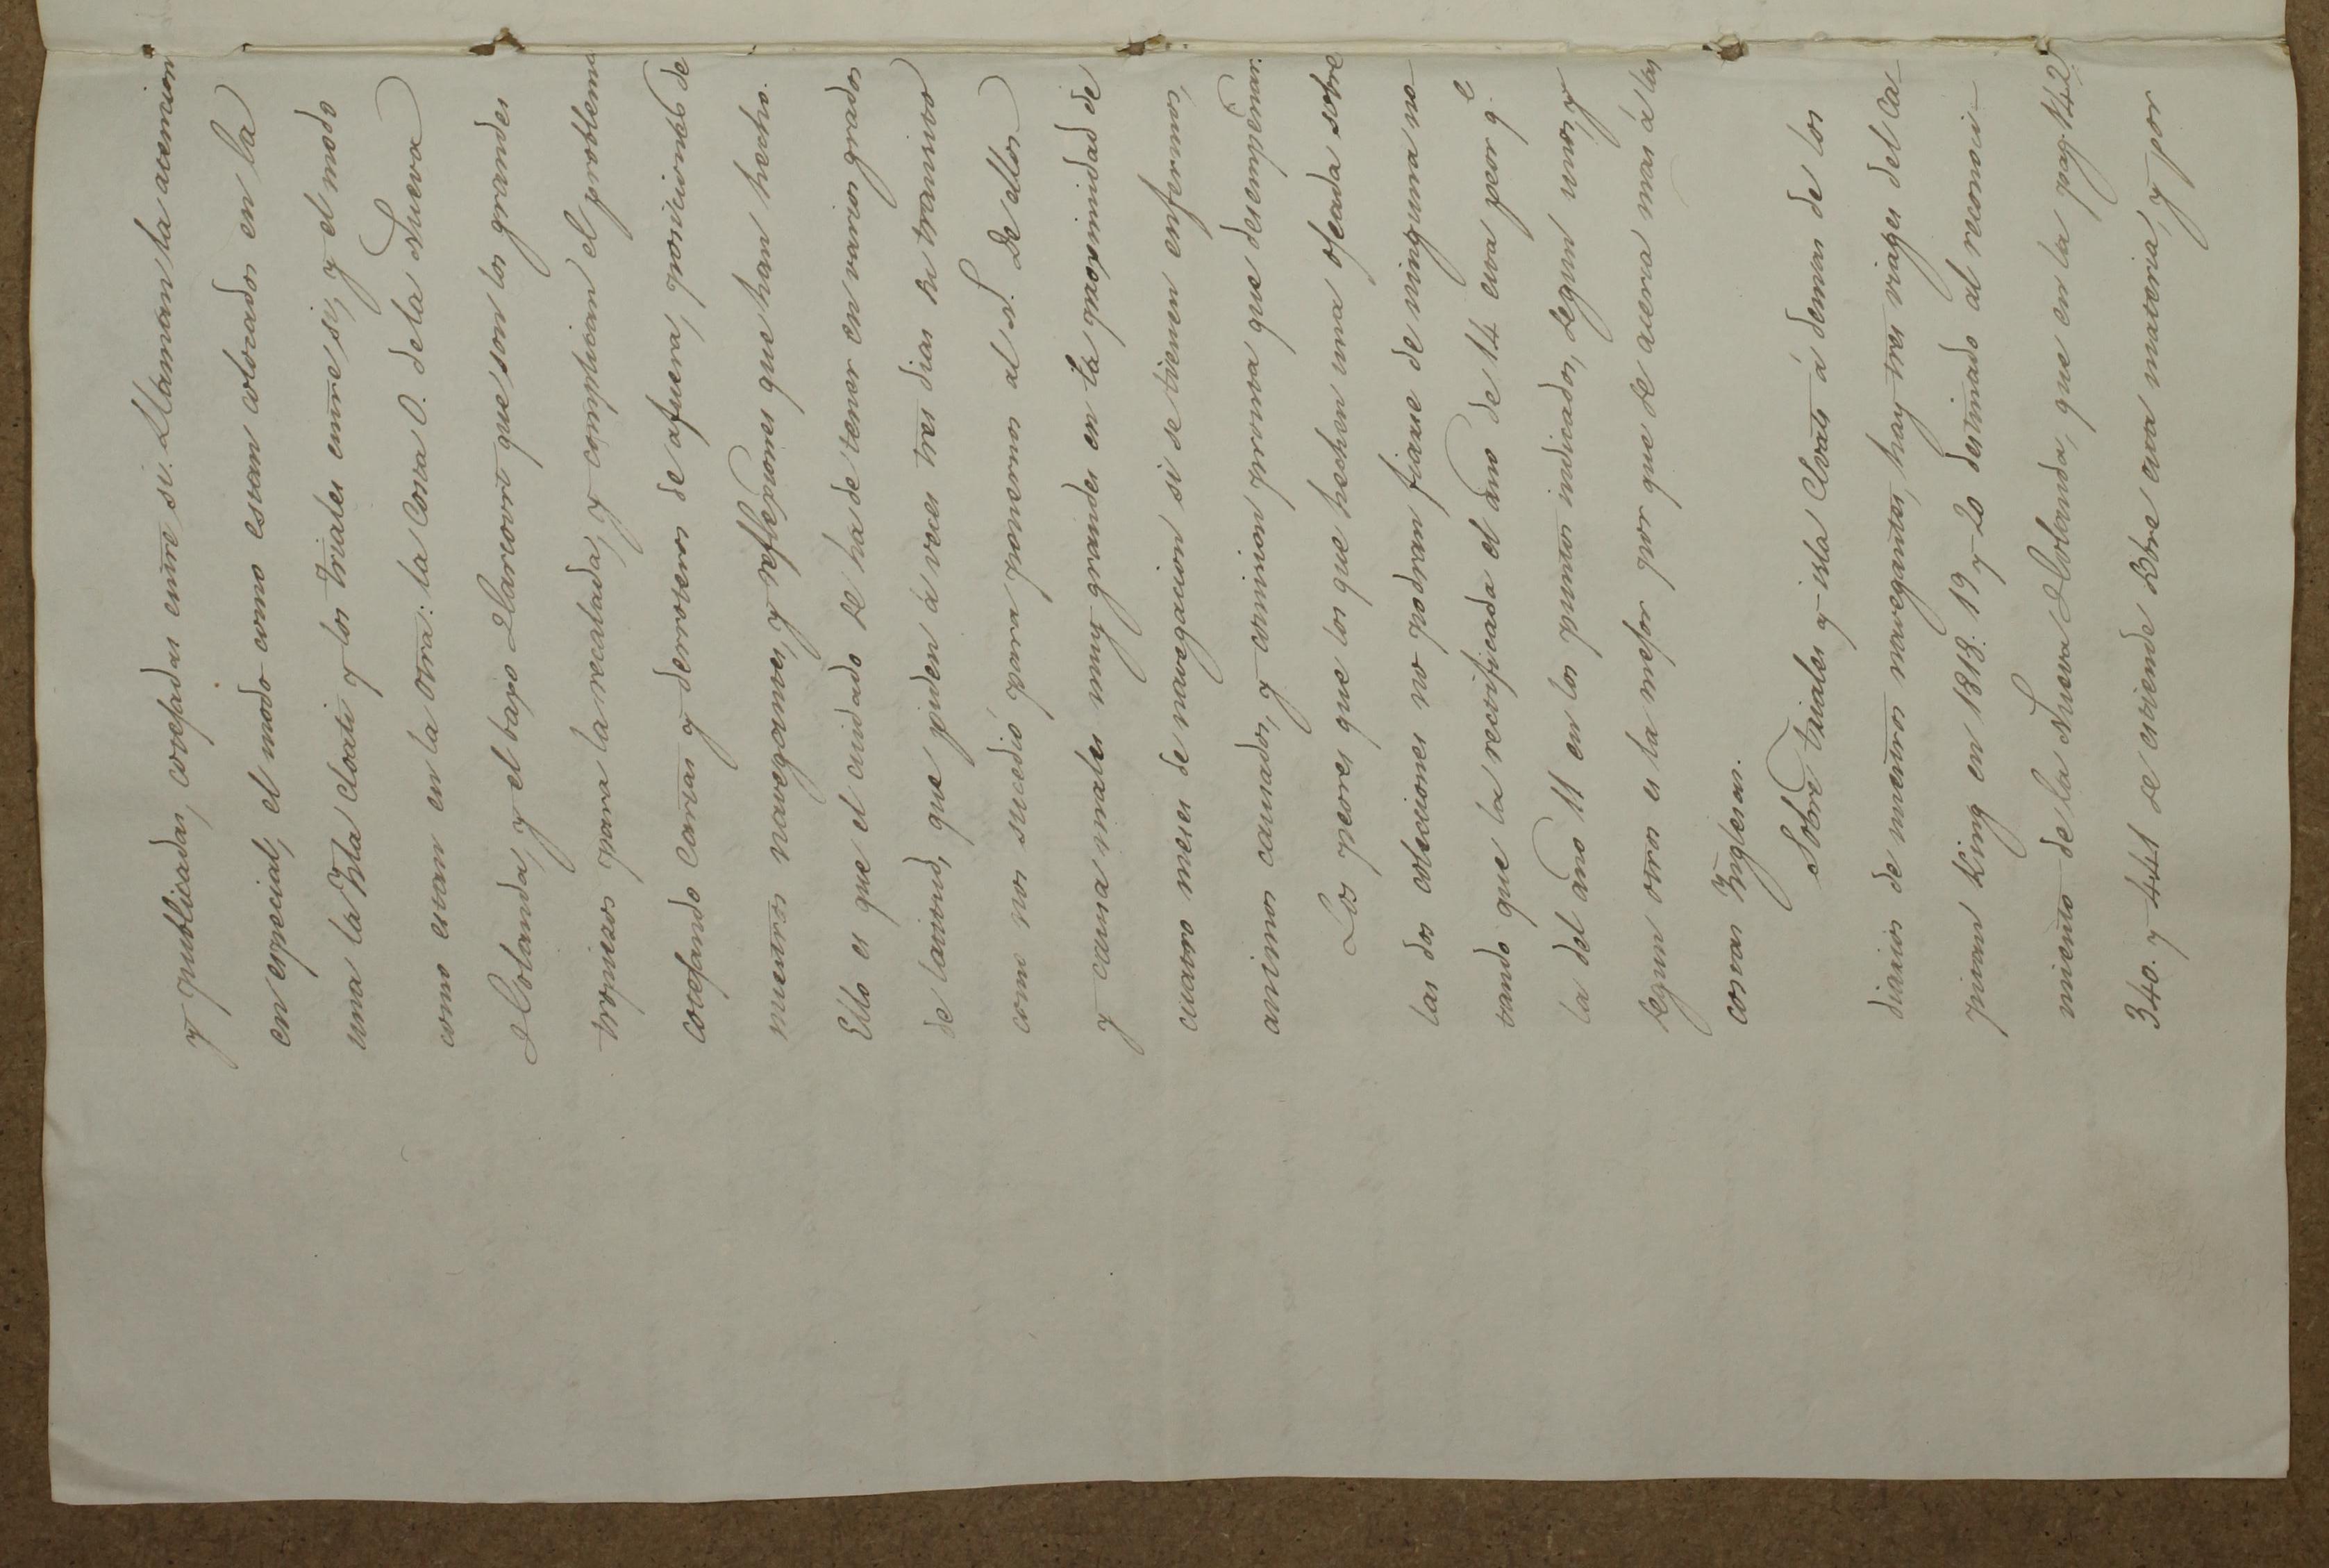 y publicadas, cotejadas entre si. Llaman la atencion
en especial, el modo como estan colocados en la
una la Isla Cloats y los Triales entre si, y el modo
como estan en la otra: la Costa O. de la Nueva
Holanda, y el bajo Marcovri que son los grandes
tropiezos para la recalada, y complican el problema
cotejando cartas y derroteros de afuera, posiciones de
nuestros navegantes, y reflexiones que han hecho.
Ello es que el cuidado se ha de tener en varios grados
de latitud, que piden á veces tres dias de transitoo
como nos sucedió para ponernos al N. de ellos
y causa males muy grandes en la proximidad de
cuatro meses de navegacion si se tienen enfermos,
animos cansados, y comision pronta que desempeñar.
Los peores que los que hechen una ojeada sobre
las dos colecciones no podran fiarse de ninguna no-
tando que la rectificada el año de 14 esta peor q.e
la del año 11 en los puntos indicados, segun unos, y
segun otros es la mejor por que se acerca mas á las
costas Inglesas.
Sobre Triales y isla Cloats á demas de los
diarios de nuestros navegantes, hay tres viages del Ca-
pitan King en 1818. 19 y 20 destinado al reconoci-
miento de la Nueva Holanda, que en la pag. 442
340. y 441 se estiende sobre esta materia, y por